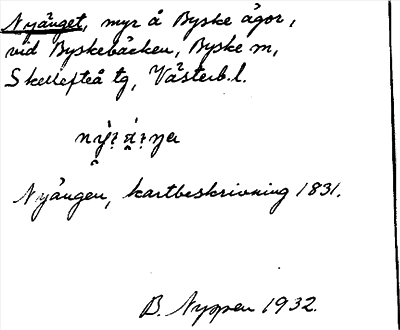 Nyänget, myr å Byske ägor,
vid Byskebäcken, Byske sn,
Skellefteå tg, Västerb. l.
Nyängen, kartbeskrivning 1831.
B. Nyppen 1932.